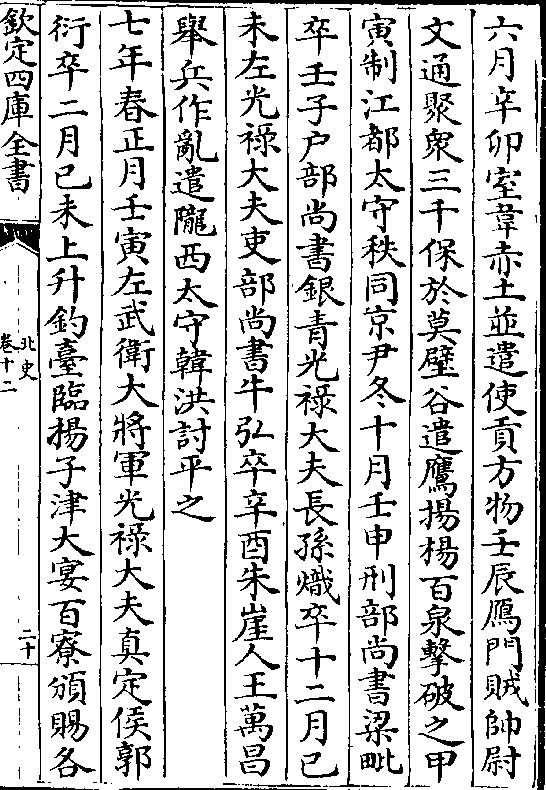 六月辛卯室韋赤土並遣使貢方物壬辰鴈門賊帥尉
文通聚衆三千保於莫壁谷遣鷹揚楊百泉擊破之甲
寅制江都太守秩同京尹冬十月壬申刑部尚書梁毗
卒壬子户部尚書銀青光祿大夫長孫熾卒十二月己
未左光祿大夫吏部尚書牛弘卒辛酉朱崖人王萬昌
舉兵作亂遣隴西太守韓洪討平之
七年春正月壬寅左武衛大將軍光祿大夫真定侯郭
衍卒二月己未上升釣臺臨揚子津大宴百寮頒賜各
欽定四庫全書
北史
卷十二
二十